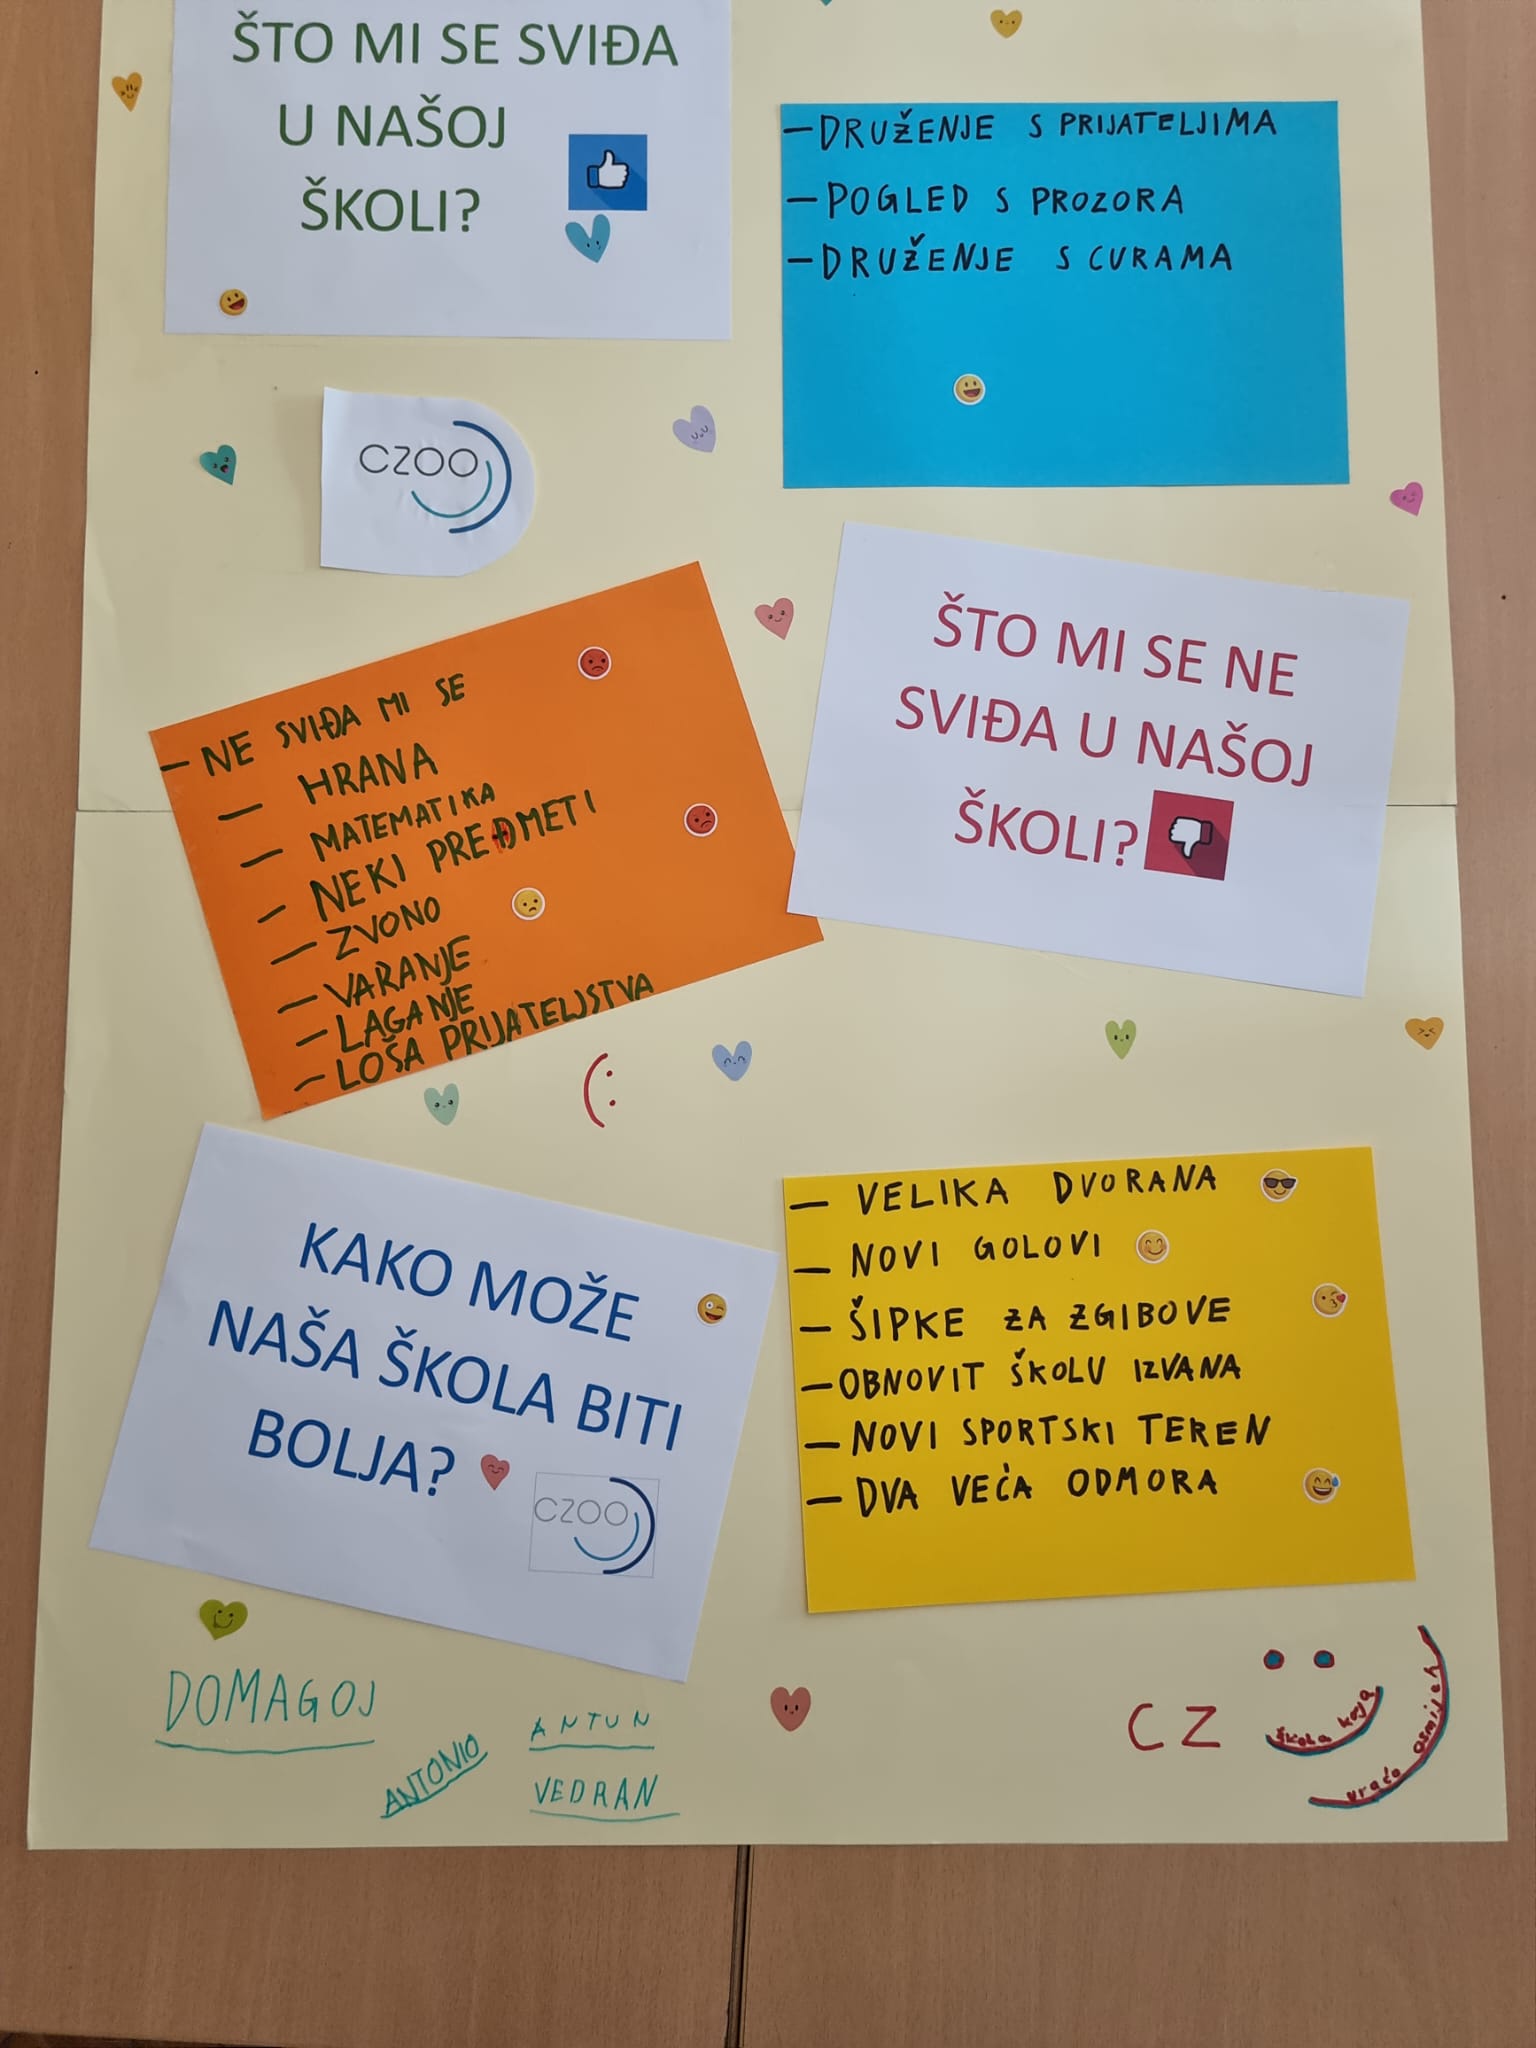 ŠTO MI SE SVIĐA
U NAŠOJ
ŠKOLI?
– DRUŽENJE S PRIJATELJIMA
– POGLED S PROZORA
– DRUŽENJE S CURAMA
CZOO
– NE SVIĐA MI SE
– HRANA
– MATEMATIKA
– NEKI PREDMETI
– ZVONO
– VARANJE
– LAGANJE
– LOŠA PRIJATELJSTVA
ŠTO MI SE NE
SVIĐA U NAŠOJ
ŠKOLI?
KAKO MOŽE
NAŠA ŠKOLA BITI
BOLJA?
CZOO
– VELIKA DVORANA
– NOVI GOLOVI
– ŠIPKE ZA ZGIBOVE
– OBNOVIT ŠKOLU IZVANA
– NOVI SPORTSKI TEREN
– DVA VEĆA ODMORA
DOMAGOJ
ANTONIO
ANTUN
VEDRAN
CZ
škola koja
vraća osmijeh